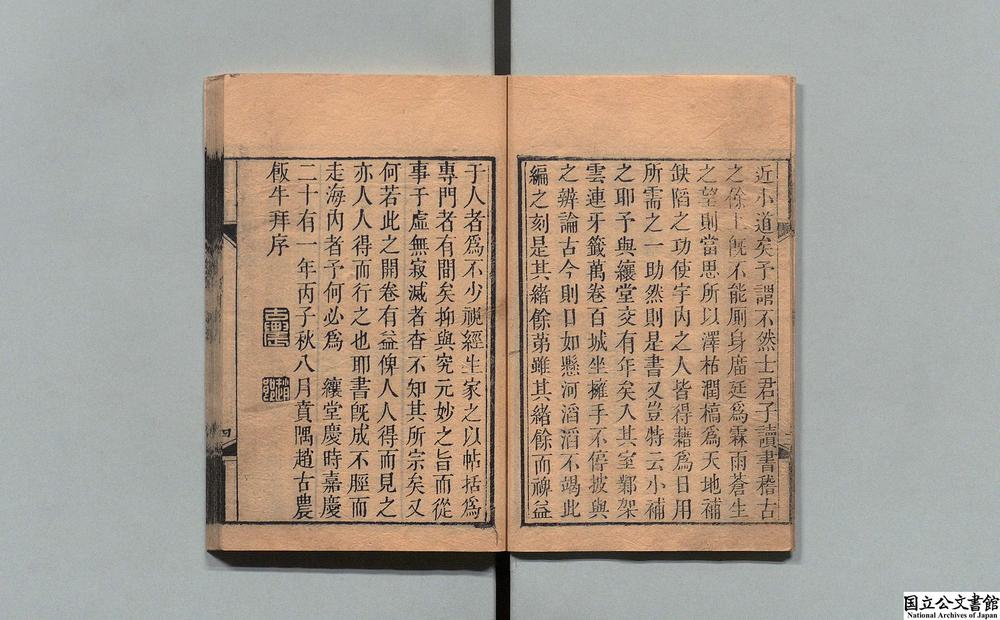 近小道矣予謂不然士君子讀書稽古
之餘上既不能厠身廣廷爲霖雨蒼生
之望則當思所以澤枯潤槁爲天地補
缺陷之功使宇內之人皆得藉爲日用
所需之一助然則是書又豈特云小補
之耶予與纕堂交有年矣入其室鄴架
雲連牙籤萬卷百城坐擁手不停披與
之辨論古今則日如懸河滔滔不竭此
編之刻是其緒餘第雖其緒餘而裨益
于人者爲不少視經生家之以帖括爲
專門者有間矣抑與究元妙之旨而從
事于虛無寂滅者杳不知其所宗矣又
何若此之開卷有益俾人人得而見之
亦人人得而行之也耶書既成不脛而
走海內者予何必爲 纕堂慶時嘉慶
二十有一年丙子秋八月賁隅趙古農
飯牛拜序
四
国立公文書館
National Archives of Japan